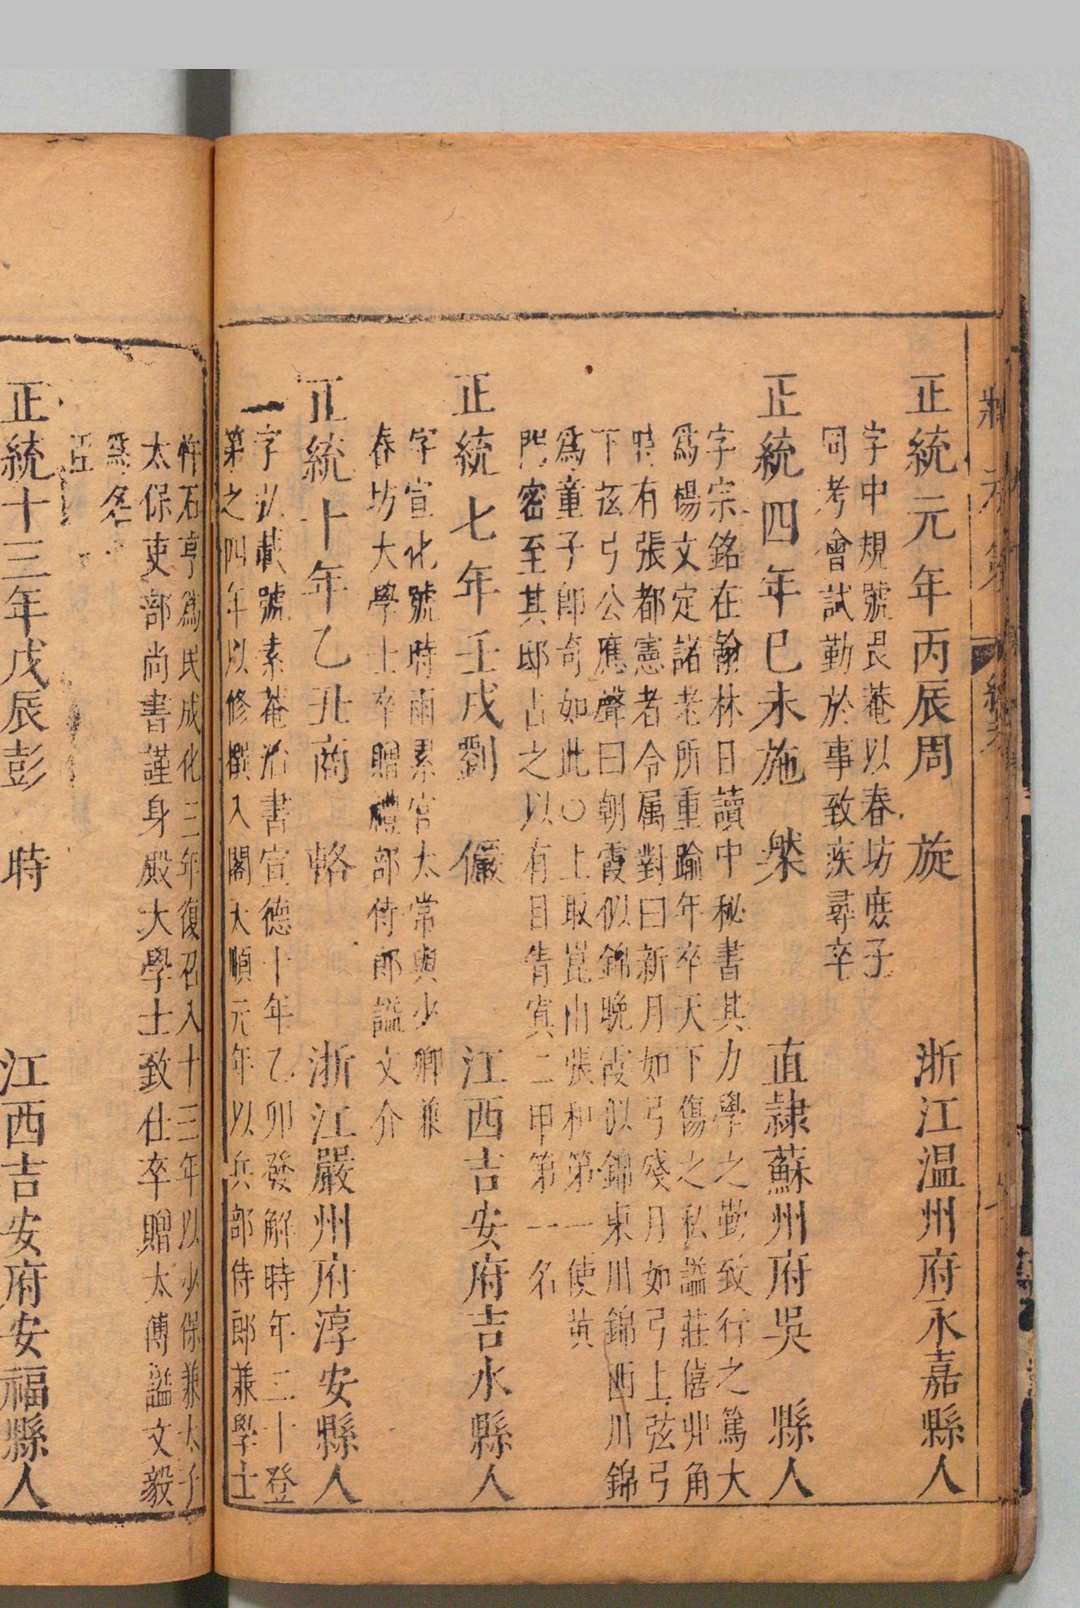 正統元年丙辰周　旋　浙江温州府永嘉縣人
字中規號畏菴以春坊庶子
同考會試勤於事致疾尋卒
正統四年巳未施　槃　直隷蘇州府吳　縣人
字宗銘在翰林日讀中秘書其力學之勤致行之篤大
爲楊文定諸老所重踰年卒天下傷之私謚莊僖丱角
時有張都憲者令属對曰新月如弓殘月如弓上弦弓
下弦弓公應聲曰朝霞似錦晚霞似錦東川錦西川錦
爲童子郎奇如此○上取崑山張和第一使黄
門密至其邸占之以有目眚寘二甲第一名
正統七年壬戌劉　儼　江西吉安府吉水縣人
字宣化號時雨累官太常與少卿兼
春坊大學士卒贈禮部侍郎謚文介
正統十年乙丑商　輅　浙江嚴州府淳安縣人
字弘載號素菴治書宣德十年乙卯發解時年二十登
第之四年以修撰入閣天順元年以兵部侍郎兼學士
忤石亨爲民成化三年復召入十三年以少保兼太子
太保吏部尚書謹身殿大學士致仕卒贈太傅謚文毅
正統十三年戊辰彭　時　江西吉安府安福縣人